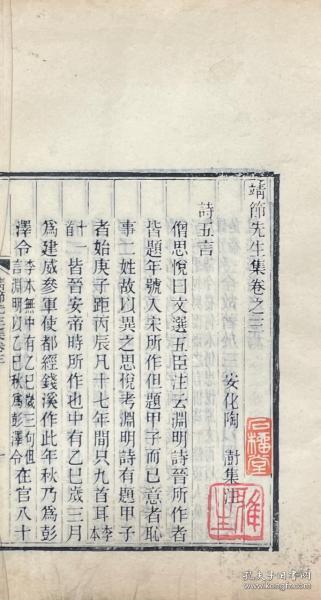 靖節先生集卷之三
安化陶 澍集注
詩五言
僧思悅曰文選五臣注云淵明詩晉所作者
皆題年號入宋所作但題甲子而已意者恥
事二姓故以異之思悅考淵明詩有題甲子
者始庚子距丙辰凡十七年間只九首耳李本
十一首皆晉安帝時所作也中有乙巳歲三月
爲建威參軍使都經錢溪作此年秋乃爲彭
澤令李本無中有乙巳歲三句但言淵明以乙巳秋爲彭澤令在官八十
石榴堂
孔夫子旧书网